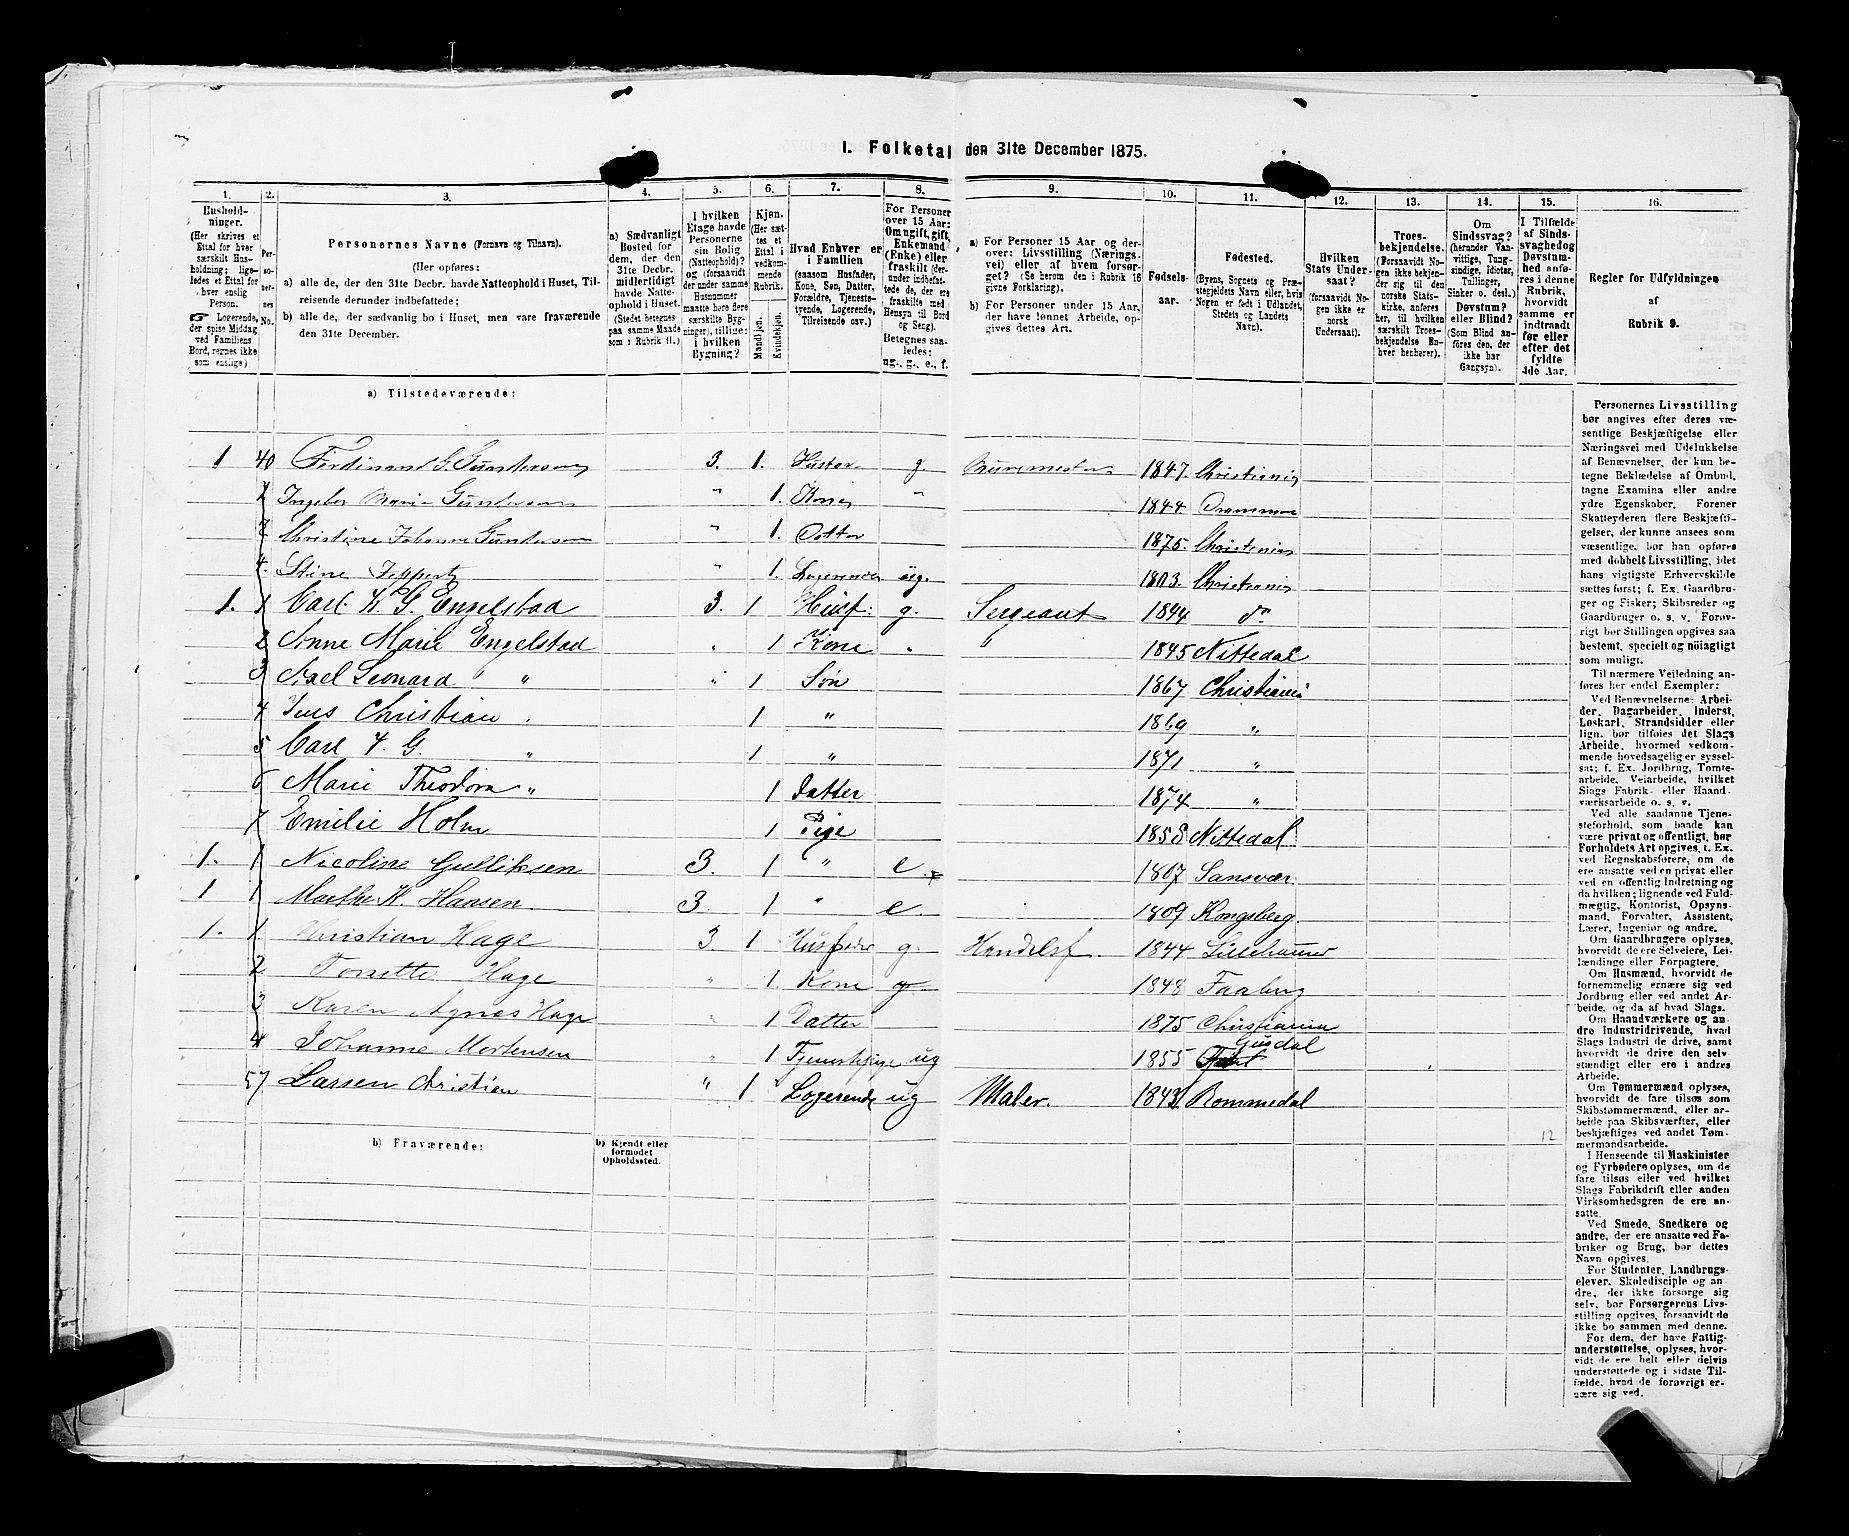 I. Folketal den 31te December 1875.
1. 2. 3. 4. 5. 6. 7. 8. 9. 10. 11. 12. 13. 14. 15. 16.
Husholdninger. (Her skrives et Ettal for hver særskilt Husholdning; ligeledes et Ettal for hver enslig Person. Logerende, der spise Middag ved Familiens Bord, regnes ikke som enslige)
Personernes No.
Personernes Navne (Fornavn og Tilnavn).
(Her opføres:
a) alle de, der den 31te Decbr. havde Natteophold i Huset, Tilreisende derunder indbefattede;
b) alle de, der sædvanlig bo i Huset, men vare fraværende den 31te December.
a) Sædvanligt Bosted for dem, der den 31te Decbr. midlertidigt havde Natteophold i Huset. (Stedet betegnes paa samme Maade som i Rubrik 11.)
I hvilken Etage havde Personerne sin Bolig (Natteophold)? og (forsaavidt der under samme Husnummer maatte høre flere særskilte Bygninger), tillige: i hvilken Bygning?
Kjøn. (Her sættes et Ettal i vedkommende Rubrik. Mandkjøn. Kvindekjøn.
Hvad Enhver er i Familien (saasom Husfader, Kone, Søn, Datter, Forældre, Tjenestetyende, Logerende, Tilreisende osv.)
For Personer over 15 Aar: Om ugift, gift, Enkemand (Enke) eller fraskilt (derunder indbefattede de, der ere fraskilte med Hensyn til Bord og Seng). Betegnes saaledes: ug., g., e., f.
a) For Personer 15 Aar og derover: Livsstilling (Næringsvei) eller af hvem forsørget? (Se herom den i Rubrik 16 givne Forklaring).
b) For Personer under 15 Aar, der have lønnet Arbeide, opgives dettes Art.
Fødselsaar.
Fødested. (Byens, Sognets og Præstegjeldets Navn eller, hvis Nogen er født i Udlandet, Stedets og Landets Navn).
Hvilken Stats Undersaat? (forsaavidt Nogen ikke er norsk Undersaat).
Troesbekjendelse. (Forsaavidt Nogen ikke bekjender sig til den norske Statskirke, anføres her, til hvilken særskilt Troesbekjendelse Enhver henhører).
Om Sindssvag? (herunder Vanvittige, Tungsindige, Idioter, Tullinger, Sinker o. desl.) Døvstum? eller Blind? (Som Blind anføres den, der ikke har Gangsyn).
I Tilfælde af Sindssvaghed og Døvstumhed anføres i denne Rubrik, hvorvidt samme er indtraadt før eller efter det fyldte 4de Aar.
Regler for Udfyldningen af Rubrik 9.
a) Tilstedeværende:
1 40 Ferdinand G. Gundersen 3. 1. Husfar g. Muremester 1847. Christiania
2 Ingebor Maria Gundersen " 1. Kone " 1844 Drammen
3 Christine Johanne Gundersen " 1. Dotter 1875. Christiania
4. Stine " 1. Logerende ug. Christiania
1. 1 Carl H. G. Engelstad 3. 1 Husf: g. Sergeant 1844 do
2 Anne Marie Engelstad " 1 Kone " 1845 Nittedal
3 Axel Leonard " " 1 Søn 1867 Christiania
4 Jens Christian " 1 " 1869 "
5 Carl F. G. " 1 " 1871 "
6 Marie Theodora " 1 Datter 1874 "
7 Emilie Holm 1 Pige 1858 Nittedal
1. 1 Nicoline Gulliksen 3. 1 " e. 1807 Sansvær
1 1 Marthe K. Hansen 3. 1 " e. 1809 Kongsberg
1. 1 Christian Hage 3. 1 Husfader g. Handelsf. 1844 Lillehammer
2 Tonette Hage " 1 Kone g. 1848 Faaberg
3 Karen Agnes Hage " 1 Datter 1875 Christiania
4 Johanne Mortensen " 1 Tjenestepige ug 1855 Gusdal
57 Larsen Christian " 1 Logerende ug Maler. 1843 Rommedal
12
b) Fraværende:
b) Kjendt eller formodet Opholdssted.
Personernes Livsstilling
bør angives efter deres væ-
sentlige Beskjæftigelse eller
Næringsvei med Udelukkelse
af Benævnelser, der kun be-
tegne Beklædelse af Ombud,
tagne Examina eller andre
ydre Egenskaber. Forener
Skatteyderen flere Beskjæfti-
gelser, der kunne ansees som
væsentlige, bør han opføres
med dobbelt Livsstilling, idet
hans vigtigste Erhvervskilde
sættes først; f. Ex. Gaardbru-
ger og Fisker; Skibsreder og
Gaardbruger o. s. v. Forøv-
rigt bør Stillingen opgives saa
bestemt, specielt og nøiagtigt
som muligt.
Til nærmere Veiledning an-
føres her endel Exempler:
Ved Benævnelserne: Arbei-
der, Dagarbeider, Inderst,
Løskarl, Strandsidder eller
lign. bør tilføies det Slags
Arbeide, hvormed vedkom-
mende hovedsagelig er syssel-
sat; f. Ex. Jordbrug, Tomte-
arbeide, Veiarbeide, hvilket
Slags Fabrik- eller Haand-
værksarbeide o. s. v.
Ved alle saadanne Tjene-
steforhold, som baade kan
være privat og offentligt, bør
Forholdets Art opgives, t. Ex.
ved Regnskabsførere, om de
ere ansatte ved en privat eller
ved en offentlig Indretning og
da hvilken; lignende ved Fuld-
mægtig, Kontorist, Opsyns-
mand, Forvalter, Assistent,
Lærer, Ingeniør og andre.
Om Gaardbrugere oplyses,
hvorvidt de ere Selveiere, Lei-
lændinge eller Forpagtere.
Om Husmænd, hvorvidt de
fornemmelig ernære sig ved
Jordbrug eller ved andet Ar-
beide, og da af hvad Slags.
Om Haandværkere og an-
dre Industridrivende, hvad
Slags Industri de drive, samt
hvorvidt de drive den selv-
stændigt eller ere i andres
Arbeide.
Om Tømmermænd oplyses,
hvorvidt de fare tilsøs som
Skibstømmermænd, eller ar-
beide paa Skibsværfter, eller
beskjæftiges ved andet Tøm-
mermandsarbeide.
I Henseende til Maskinister
og Fyrbødere oplyses, om de
fare tilsøs eller ved hvilket
Slags Fabrikdrift eller anden
Virksomhedsgren de ere an-
satte.
Ved Smede, Snedkere og
andre, der ere ansatte ved Fa-
briker og Brug, bør dettes
Navn opgives.
For Studenter, Landbrugs-
elever, Skoledisciple og an-
dre, der ikke forsørge sig
selv, bør Forsørgerens Livs-
stilling opgives, forsaavidt de
ikke bo sammen med denne.
For dem, der have Fattig-
understøttelse, oplyses, hvor-
vidt de ere helt eller delvis
understøttede og i sidste Til-
fælde, hvad de forøvrigt er-
nære sig ved.